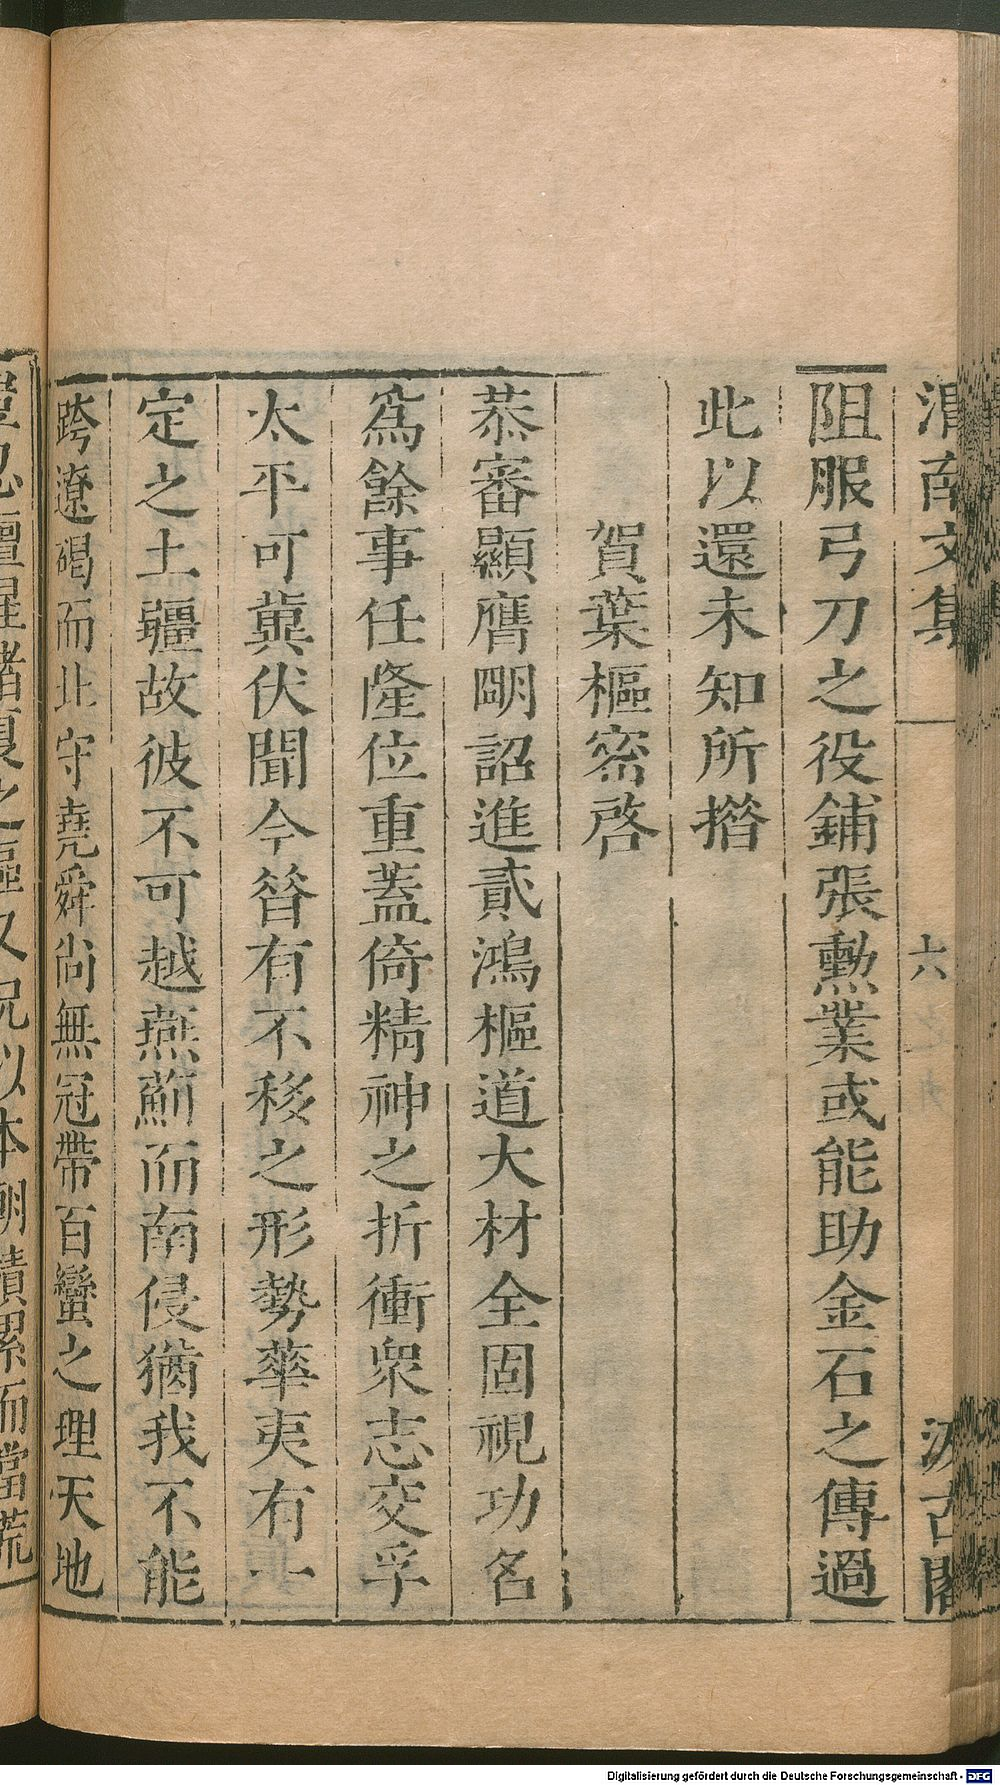 渭南文集 六 汲古閣
阻服弓刀之役鋪張勲業或能助金石之傳過
此以還未知所措
賀葉樞密啓
恭審顯膺朙詔進貳鴻樞道大材全固視功名
爲餘事任隆位重蓋倚精神之折衝衆志交孚
太平可兾伏聞今昝有不移之形勢華夷有一
定之土疆故彼不可越燕薊而南侵猶我不能
跨遼碣而北守堯舜尚無冠帶百蠻之理天地
之區又況以本朝積累而當荒
Digitalisierung gefördert durch die Deutsche Forschungsgemeinschaft - DFG